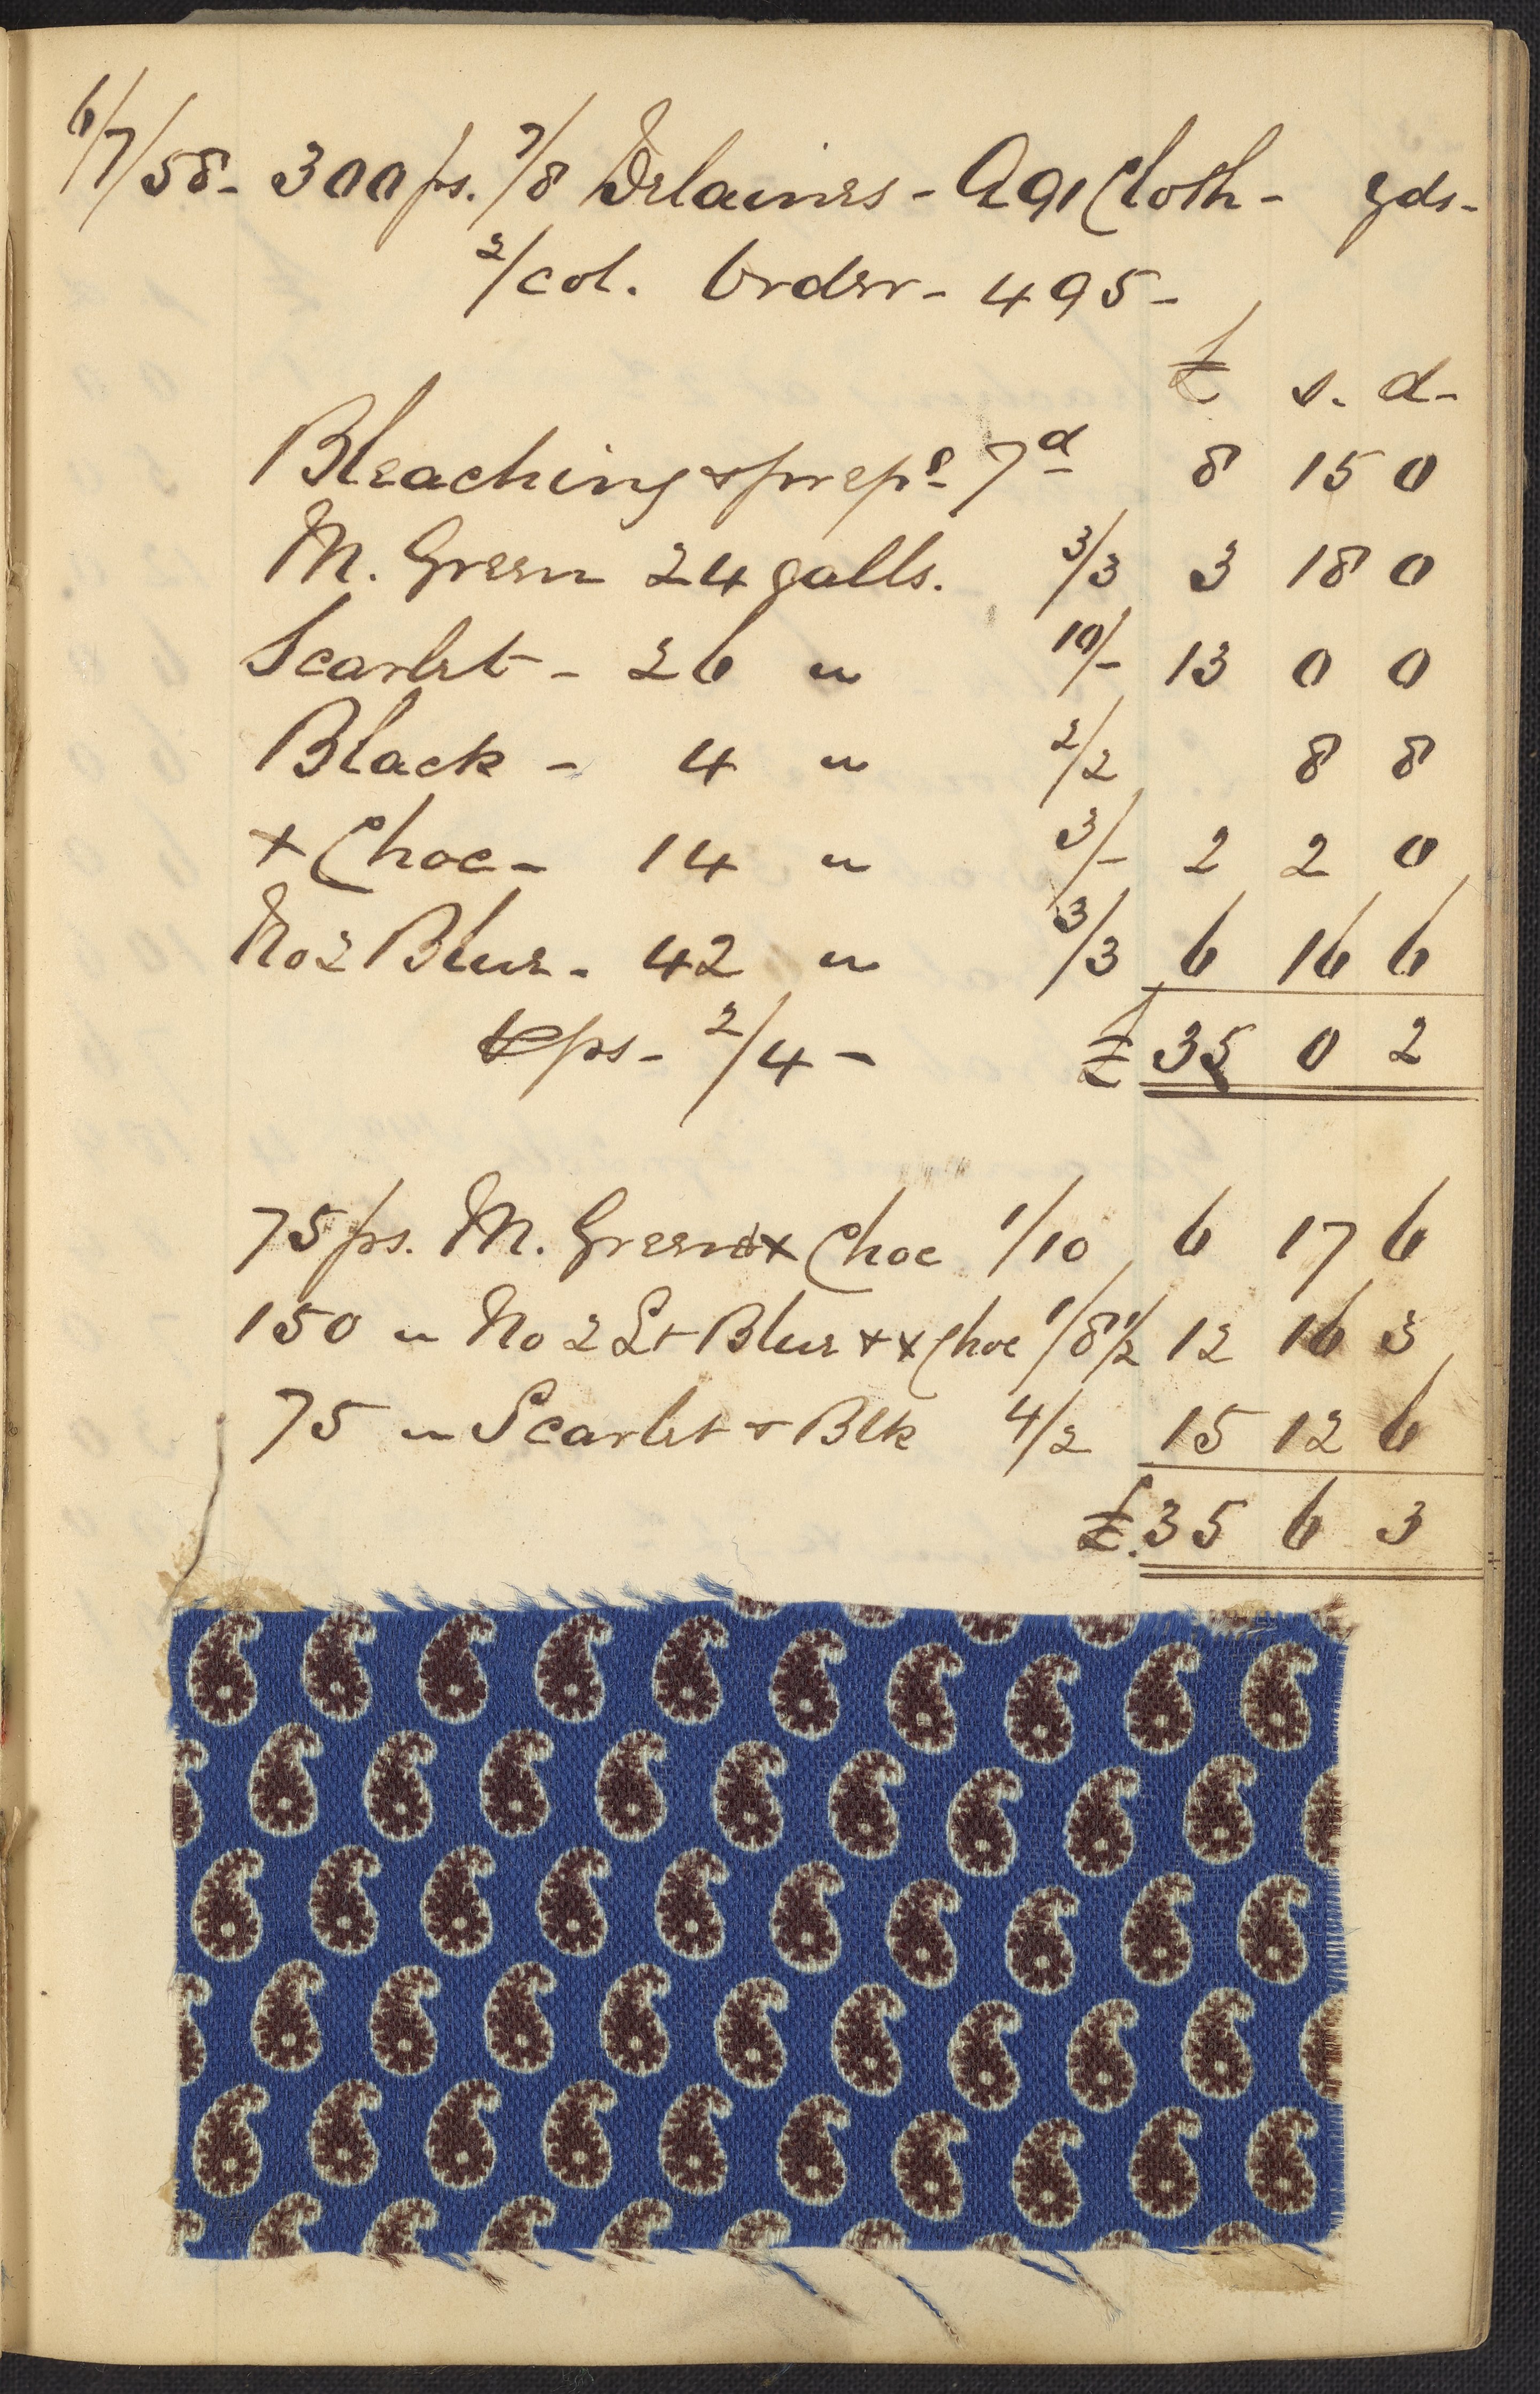 6/7/58 - 300 ps. 7/8 Delaines - A91 Cloth - yds -
2/col. Order - 495 -
£ s. d -
Bleaching & prepg 7d 8 15 0
M. Green 24 galls. 3/3 3 18 0
Scarlet - 26 " 10/- 13 0 0
Black - 4 " 2/2 8 8
x Choc - 14 " 3/- 2 2 0
No 2 Blue - 42 " 3/3 6 16 6
ps - 2/4 - £ 35 0 2
75 ps. M. Green & x Choc 1/10 6 17 6
150 " No 2 Lt Blue + x Choc 1/8 1/2 12 16 3
75 " Scarlet + Blk 4/2 15 12 6
£. 35 6 3